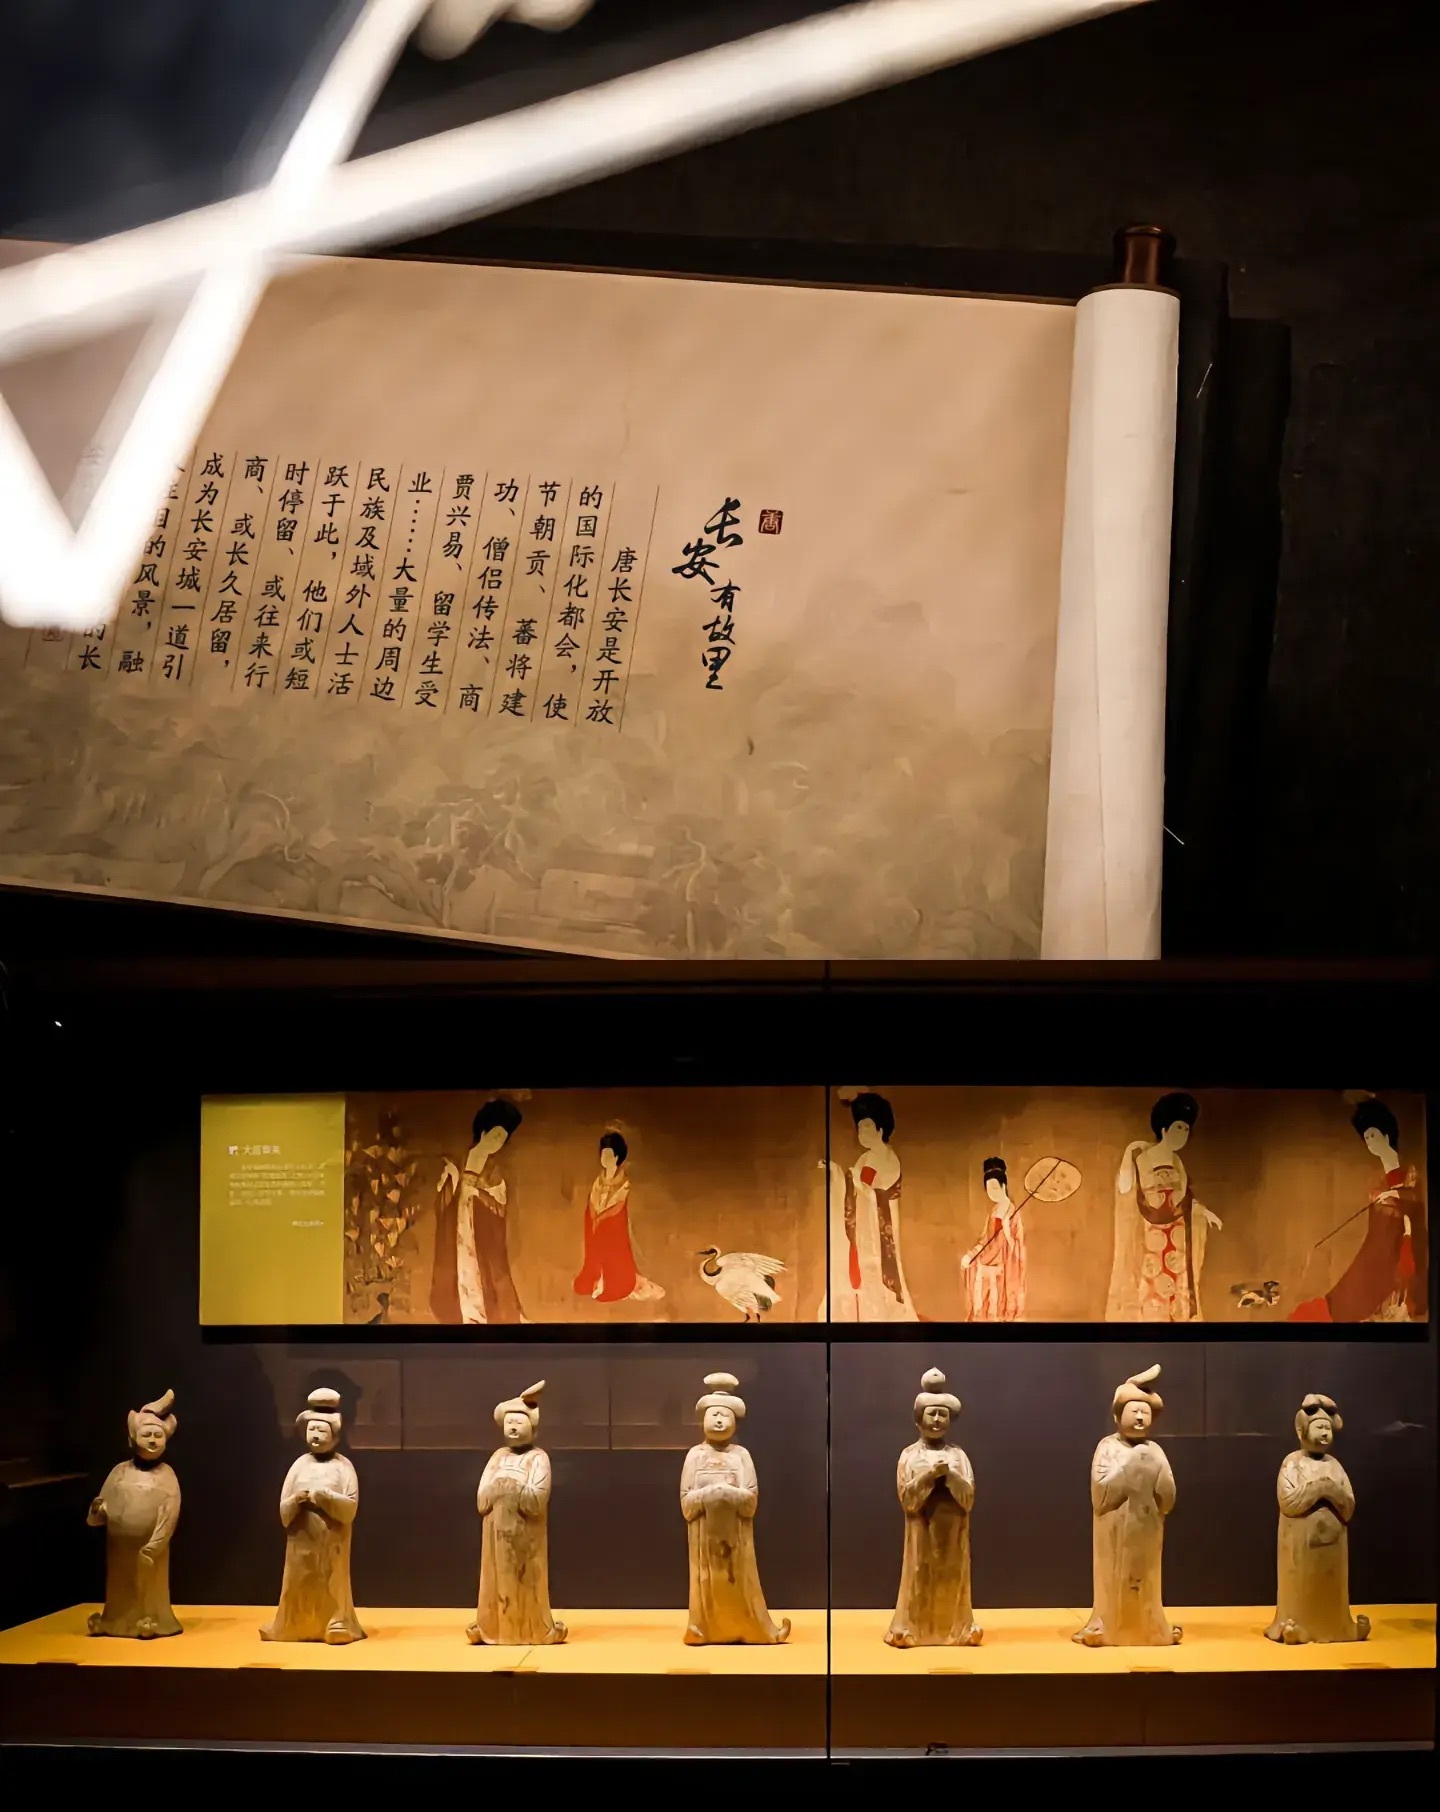 唐
长安有故里
唐长安是开放
的国际化都会，使
节朝贡、蕃将建
功、僧侣传法、商
贾兴易、留学生受
业……大量的周边
民族及域外人士活
跃于此，他们或短
时停留、或往来行
商、或长久居留，
成为长安城一道引
目的风景，融
的长